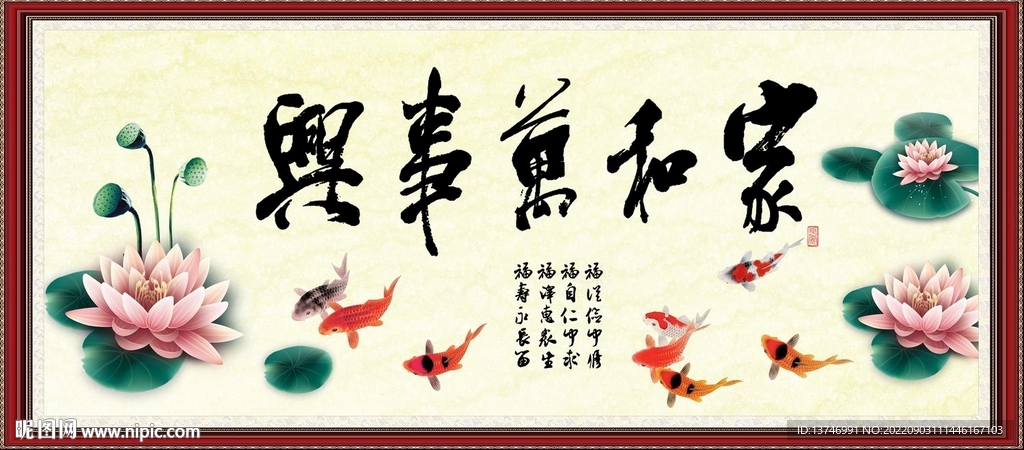 家和萬事興
福從信中修
福自仁中求
福澤惠衆生
福壽永長留
昵图网 www.nipic.com
ID:13746991 NO:20220903111446167103